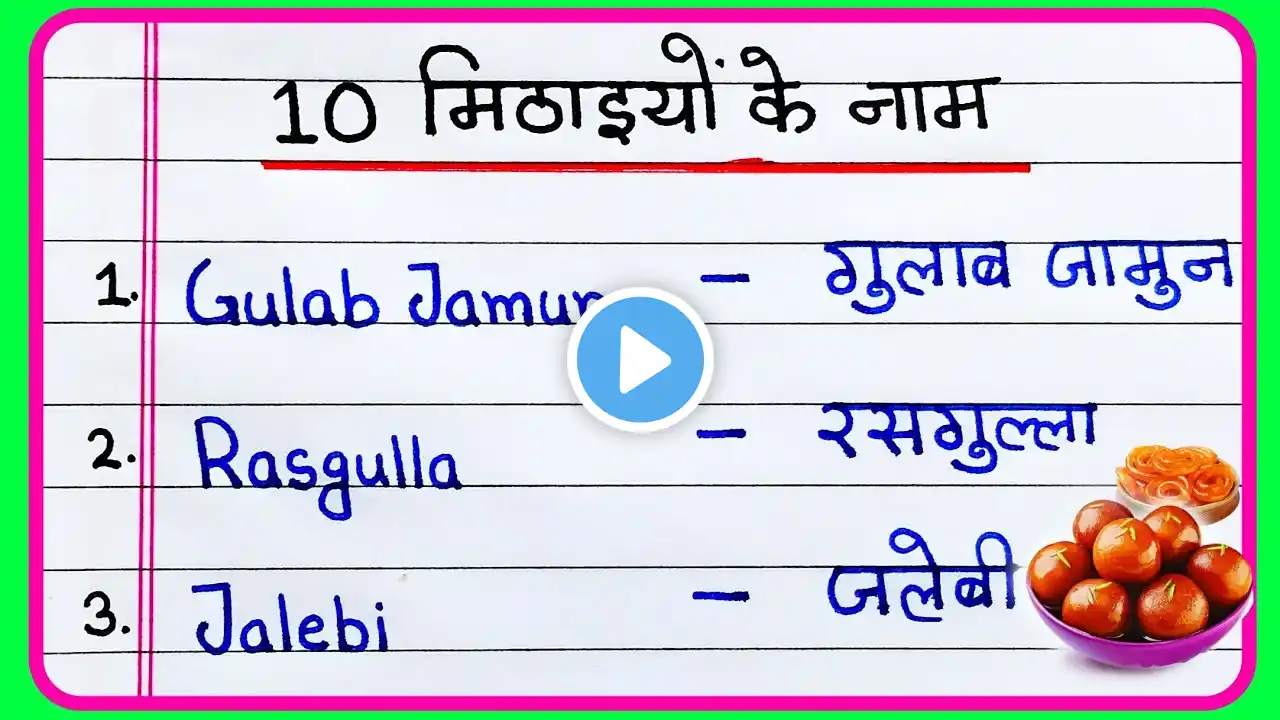 10 मिठाइयों के नाम
1. Gulab Jamun - गुलाब जामुन
2. Rasgulla - रसगुल्ला
3. Jalebi - जलेबी